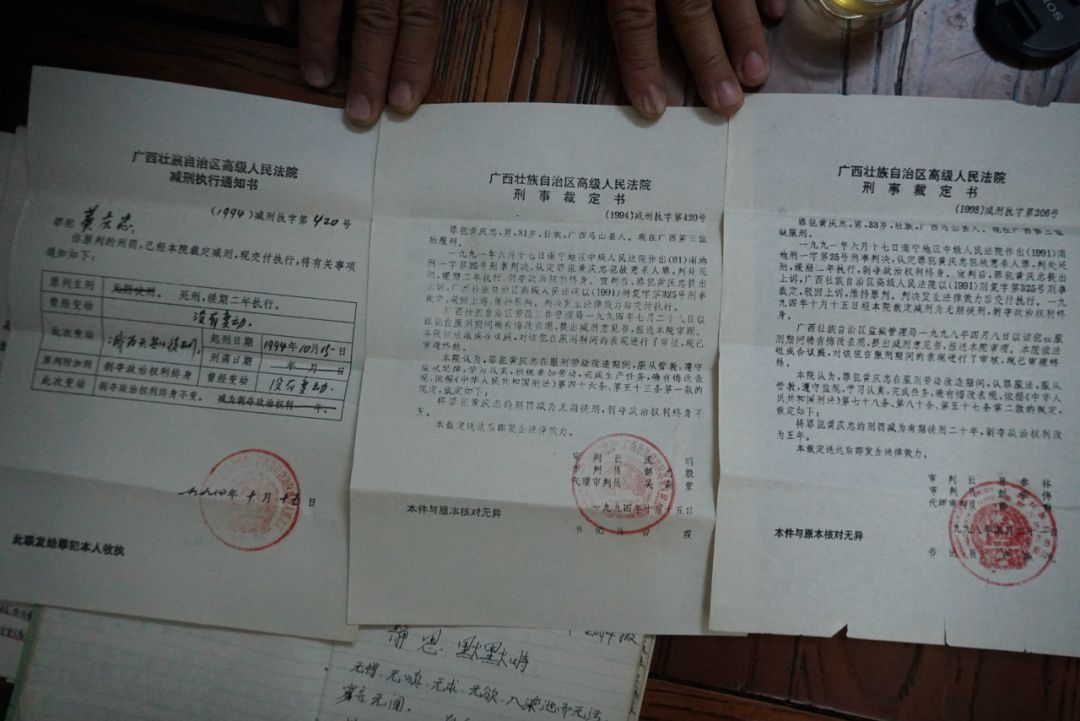 广西壮族自治区高级人民法院
减刑执行通知书
(1994)减刑执字第420号
罪犯 黄庆忠.
你原判的刑罚,已经本院裁定减刑,现交付执行,将有关事项
通知如下:
原判主刑 死刑,缓期二年执行。
曾经变动 没有变动.
此次变动 减为无期徒刑. 起刑日期 1994年10月15日
刑满日期 年 月 日
原判附加刑 剥夺政治权利终身 曾经变动 没有变动.
此次变动 剥夺政治权利终身不变。 减为剥夺政治权利 年。
一九九四年十月十五日
此联发给罪犯本人收执
广西壮族自治区高级人民法院
刑事裁定书
(1994)减刑执字第420号
罪犯黄庆忠,男,31岁,壮族,广西马山县人。现在广西第三监
狱服刑。
一九九一年六月十七日南宁地区中级人民法院作出(91)南地
刑一字第25号刑事判决,认定罪犯黄庆忠犯故意杀人罪,判处死
刑,缓期二年执行,剥夺政治权利终身。宣判后,罪犯黄庆忠提出
上诉,广西壮族自治区高级人民法院以(1991)刑复字第325号刑事
裁定,驳回上诉,维持原判。判决发生法律效力后交付执行。
广西壮族自治区劳改工作管理局一九九四年七月二十八日以
该犯在服刑期间确有悔改表现,提出减刑意见书,报送本院审理。
本院依法组成合议庭,对该犯在服刑期间的表现进行了审核,现已
审理终结。
本院认为,罪犯黄庆忠在服刑劳动改造期间,服从管教,遵守
监规纪律,学习认真,积极参加劳动,完成生产任务,确有悔改表
现,依据《中华人民共和国刑法》第四十六条、第五十三条第一款的
规定,裁定如下:
将罪犯黄庆忠的刑罚减为无期徒刑,剥夺政治权利终身不
变。
本裁定送达后即发生法律效力。
审判长
审判员
代理审判员
一九九四年十月十五日
本件与原本核对无异
书记员
广西壮族自治区高级人民法院
刑事裁定书
(1998)减刑执字第206号
罪犯黄庆忠,男,33岁,壮族,广西马山县人。现在广西第三监
狱服刑。
一九九一年六月十七日南宁地区中级人民法院作出(1991)南
地刑一字第25号刑事判决,认定罪犯黄庆忠犯故意杀人罪,判处死
刑,缓期二年执行,剥夺政治权利终身。宣判后,罪犯黄庆忠提出
上诉,广西壮族自治区高级人民法院以(1991)刑复字第325号刑事
裁定,驳回上诉,维持原判。判决发生法律效力后交付执行。一九
九四年十月十五日经本院裁定减刑为无期徒刑,剥夺政治权利终
身。
广西壮族自治区监狱管理局一九九八年四月八日以该犯在服
刑期间确有悔改表现,提出减刑意见书,报送本院审理。本院依法
组成合议庭,对该犯在服刑期间的表现进行了审核,现已审理终
结。
本院认为,罪犯黄庆忠在服刑劳动改造期间,认罪服法,服从
管教,遵守监规,学习认真,完成任务,确有悔改表现,依据《中华人
民共和国刑法》第七十八条、第八十条、第五十七条第二款的规定,
裁定如下:
将罪犯黄庆忠的刑罚减为有期徒刑二十年,剥夺政治权利改
为五年。
本裁定送达后即发生法律效力。
审判长
审判员
代理审判员
本件与原本核对无异
书记员
静思,默默
无憎、无嗔、无求、无欲、入染池而无污